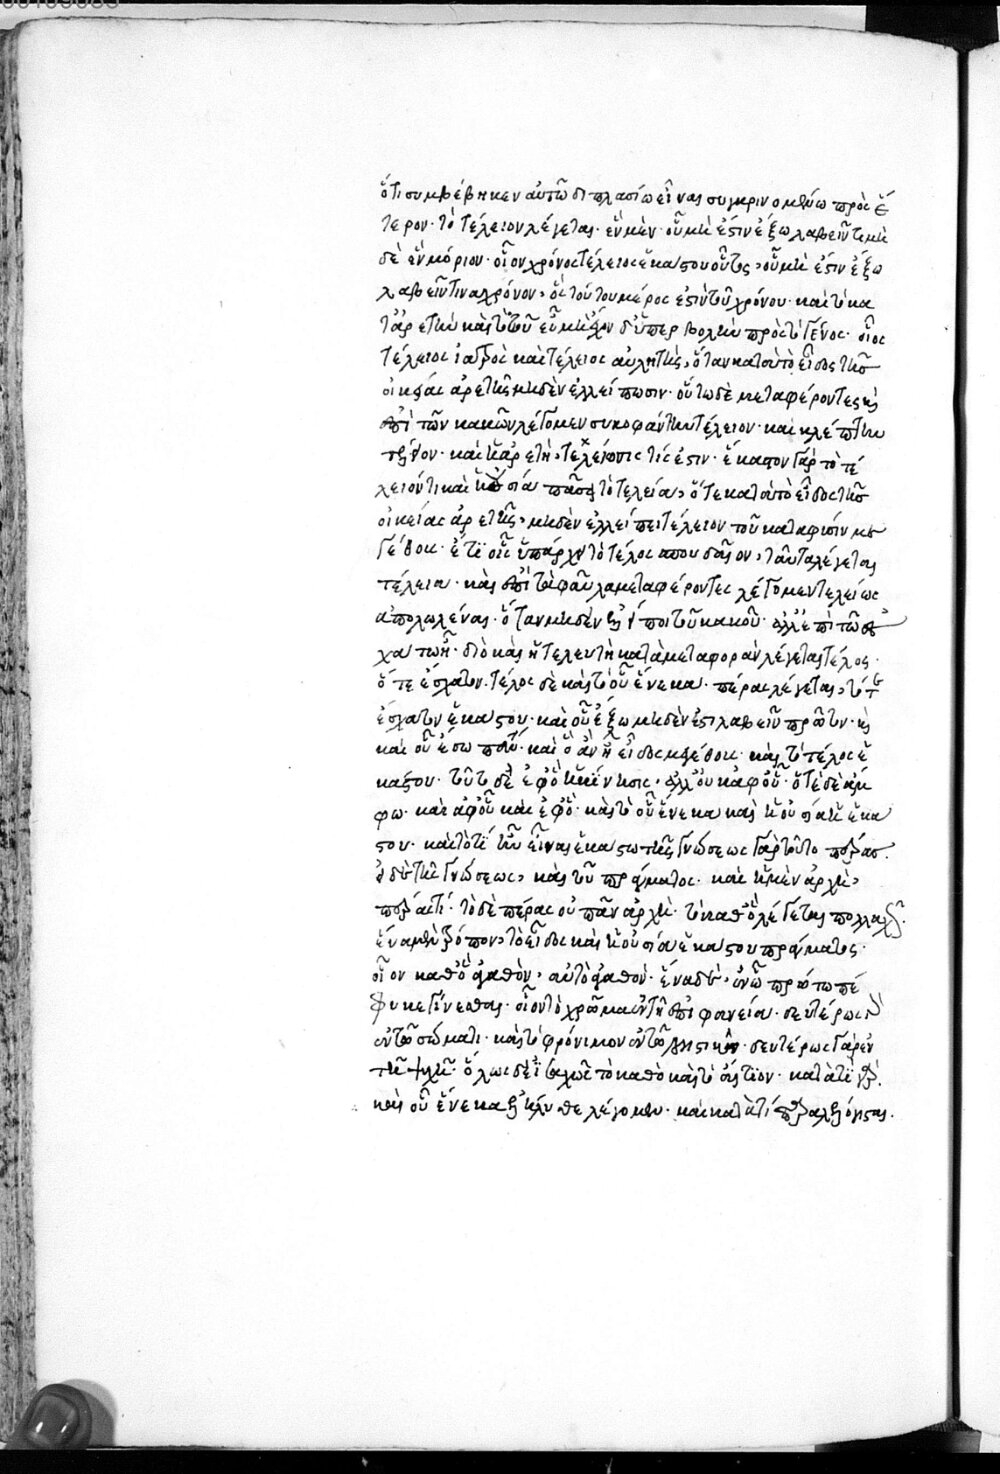 ὅτι συμβέβηκεν αὐτῶ διπλασίω εἶναι συγκρινομένω πρὸς ἕ
τερον· τὸ τέλειον λέγεται· ἓν μὲν· οὗ μὴ ἔστιν ἔξω λαβεῖν τι μη
δὲ ἓν μόριον· οἷον χρόνος τέλειος ἑκάστου οὗτος, οὗ μὴ ἔστιν ἔξω
λαβεῖν τινα χρόνον, ὃς τούτου μέρος ἐστὶ τοῦ χρόνου· καὶ τὸ κα
τ' ἀρετὴν καὶ τὸ τοῦ εὖ μὴ ἔχον ὑπερβολὴν πρὸς τὸ γένος· οἷος
τέλειος ἰατρὸς καὶ τέλειος αὐλητὴς, ὅταν κατὰ τὸ εἶδος τῆς
οἰκείας ἀρετῆς μηδὲν ἐλλείπωσιν· οὕτω δὲ μεταφέροντες καὶ
ἐπὶ τῶν κακῶν λέγομεν συκοφάντην τέλειον· καὶ κλέπτην
τέλειον· καὶ ἡ ἀρετὴ, τελείωσις τίς ἐστιν· ἕκαστον γὰρ τότε
λειόν τι καὶ οὐσία πᾶσα τότε τελεία, ὅτε κατὰ τὸ εἶδος τῆς
οἰκείας ἀρετῆς, μηδὲν ἐλλείπει τέλειον τοῦ κατα φύσιν με
γέθους· ἔτι οἷς ὑπάρχει τὸ τέλος σπουδαῖον, ταῦτα λέγεται
τέλεια· καὶ ἐπὶ τὰ φαῦλα μεταφέροντες λέγομεν τελείως
ἀπολωλέναι· ὅταν μηδὲν ἐλλείποι τοῦ κακοῦ· ἀλλ' ἐπὶ τῶ ἐσ
χάτω ἦ· διὸ καὶ ἡ τελευτὴ κατὰ μεταφορὰν λέγεται τέλος·
ὅτε ἔσχατον. τέλος δὲ καὶ τὸ οὗ ἕνεκα· πέρας λέγεται, τό τε
ἔσχατον ἑκάστου· καὶ οὗ ἔξω μηδὲν ἔστι λαβεῖν πρῶτον· καὶ
καὶ οὗ ἔσω πᾶν· καὶ ὃ ἂν ἦ εἶδος μεγέθους· καὶ τὸ τέλος ἑ
κάστου· τοῦτο δὲ ἐφ' ὃ ἡ κίνησις, ἀλλ' οὐκ ἀφ' οὗ· ὁτὲ δὲ ἄμ
φω· καὶ ἀφ' οὗ καὶ ἐφ' ὃ· καὶ τὸ οὗ ἕνεκα καὶ ἡ οὐσία ἡ ἑκά
στου· καὶ τὸ τί ἦν εἶναι ἑκάστω τῆς γνώσεως γὰρ τοῦτο πέρας.
εἰ δὲ τῆς γνώσεως, καὶ τοῦ πράγματος· καὶ ἡ μὲν ἀρχὴ,
πέρας τί· τὸ δὲ πέρας οὐ πᾶν ἀρχή· τὸ καθ' ὃ λέγεται πολλαχῶς.
ἕνα μὲν τρόπον, τὸ εἶδος καὶ ἡ οὐσία ἑκάστου πράγματος·
οἷον καθ' ὃ ἀγαθὸν, αὐτὸ ἀγαθὸν· ἕνα δὲ, ἐν ὧ πρώτω πέ
φυκε γίνεσθαι· οἷον τὸ χρῶμα ἐν τῆ ἐπιφανεία· δευτέρως δὲ
ἐν τῶ σώματι· καὶ τὸ φρόνιμον ἐν τῶ λογιστικῶ· δευτέρως γὰρ ἐν
τῆ ψυχῆ· ὅλως δὲ ἰσαχῶς τὸ καθὸ καὶ τὸ αἴτιον· κατὰ τί γὰρ
καὶ οὗ ἕνεκα ἐλήλυθε λέγομεν· καὶ κατὰ τί παραλελόγισται.